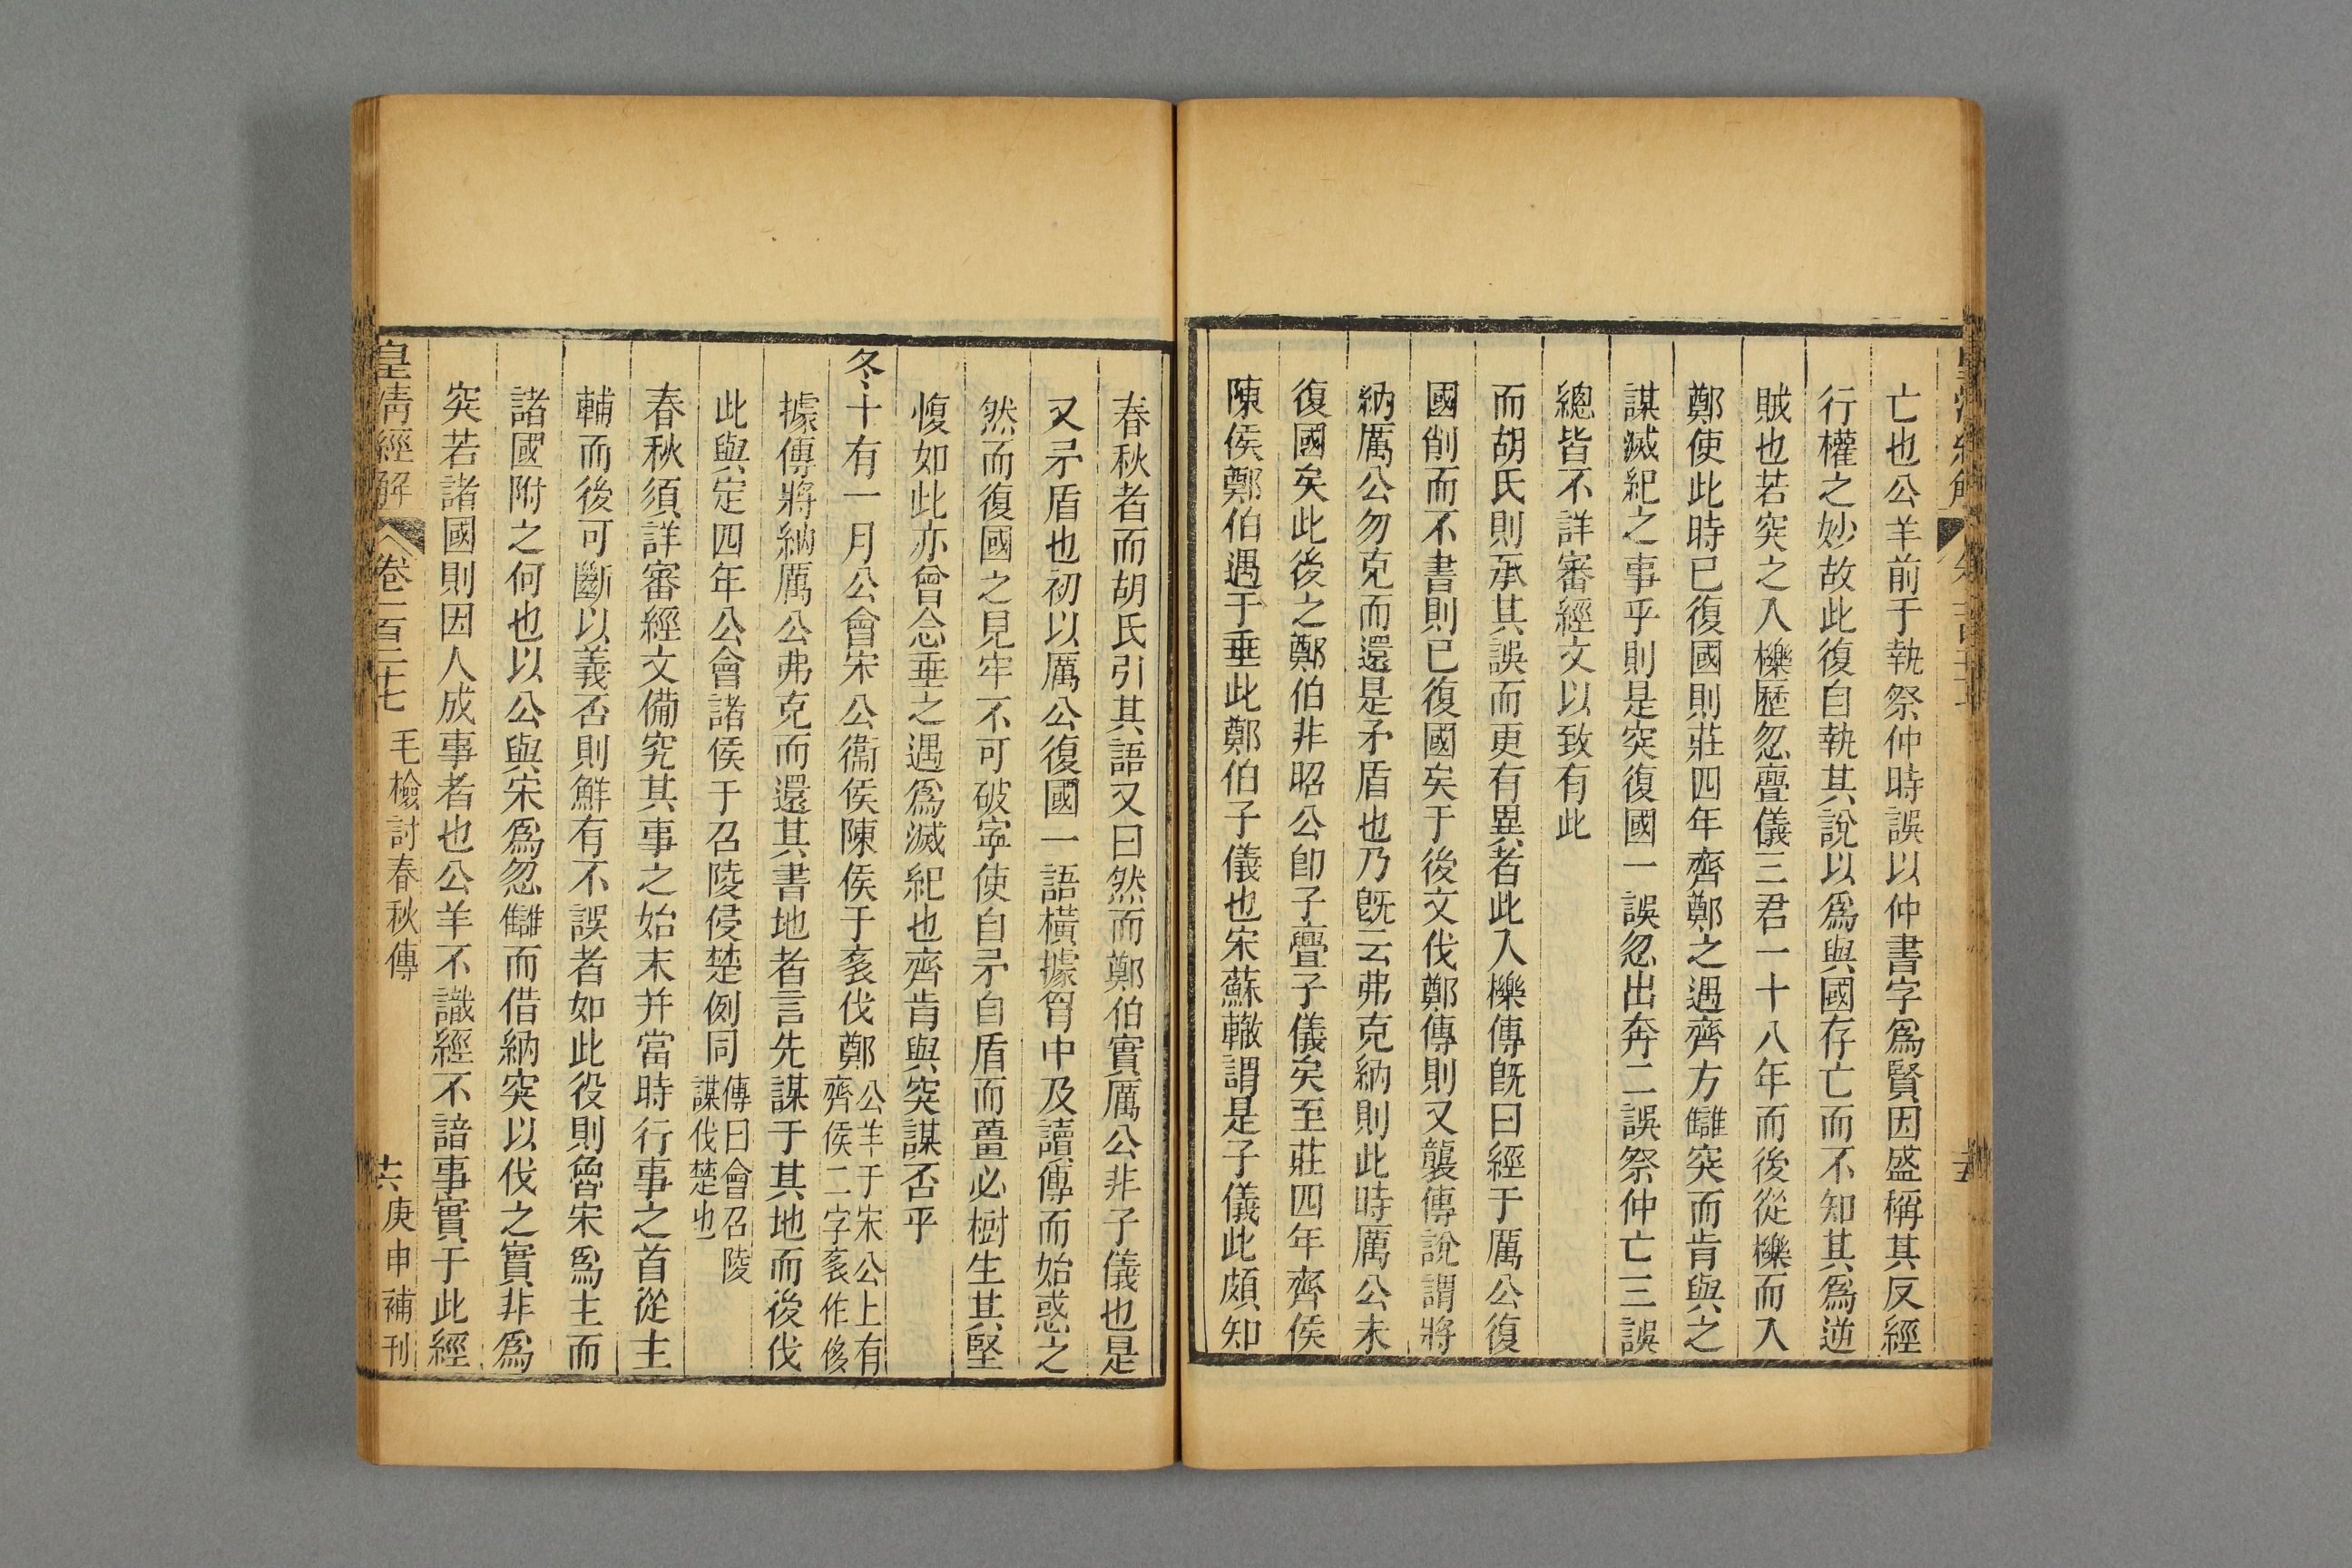 亡也公羊前于執祭仲時誤以仲書字爲賢因盛稱其反經
行權之妙故此復自執其說以爲與國存亡而不知其爲逆
賊也若突之入櫟歷忽亹儀三君一十八年而後從櫟而入
鄭使此時已復國則莊四年齊鄭之遇齊方讎突而肯與之
謀滅紀之事乎則是突復國一誤忽出奔二誤祭仲亡三誤
總皆不詳審經文以致有此
而胡氏則承其誤而更有異者此入櫟傳旣曰經于厲公復
國削而不書則已復國矣于後文伐鄭傳則又襲傳說謂將
納厲公勿克而還是矛盾也乃旣云弗克納則此時厲公未
復國矣此後之鄭伯非昭公卽子亹子儀矣至莊四年齊侯
陳侯鄭伯遇于垂此鄭伯子儀也宋蘇轍謂是子儀此頗知
春秋者而胡氏引其語又曰然而鄭伯實厲公非子儀也是
又矛盾也初以厲公復國一語橫據胷中及讀傳而始惑之
然而復國之見牢不可破寧使自矛自盾而薑必樹生其堅
愎如此亦曾念垂之遇爲滅紀也齊肯與突謀否乎
冬十有一月公會宋公衞侯陳侯于袤伐鄭公羊于宋公上有齊侯二字袤作侈
據傳將納厲公弗克而還其書地者言先謀于其地而後伐
此與定四年公會諸侯于召陵侵楚例同傳曰會召陵謀伐楚也
春秋須詳審經文備究其事之始末并當時行事之首從主
輔而後可斷以義否則鮮有不誤者如此役則魯宋爲主而
諸國附之何也以公與宋爲忽讎而借納突以伐之實非爲
突若諸國則因人成事者也公羊不識經不諳事實于此經
皇清經解 卷一百二十七 毛檢討春秋傳 十六 庚申補刊